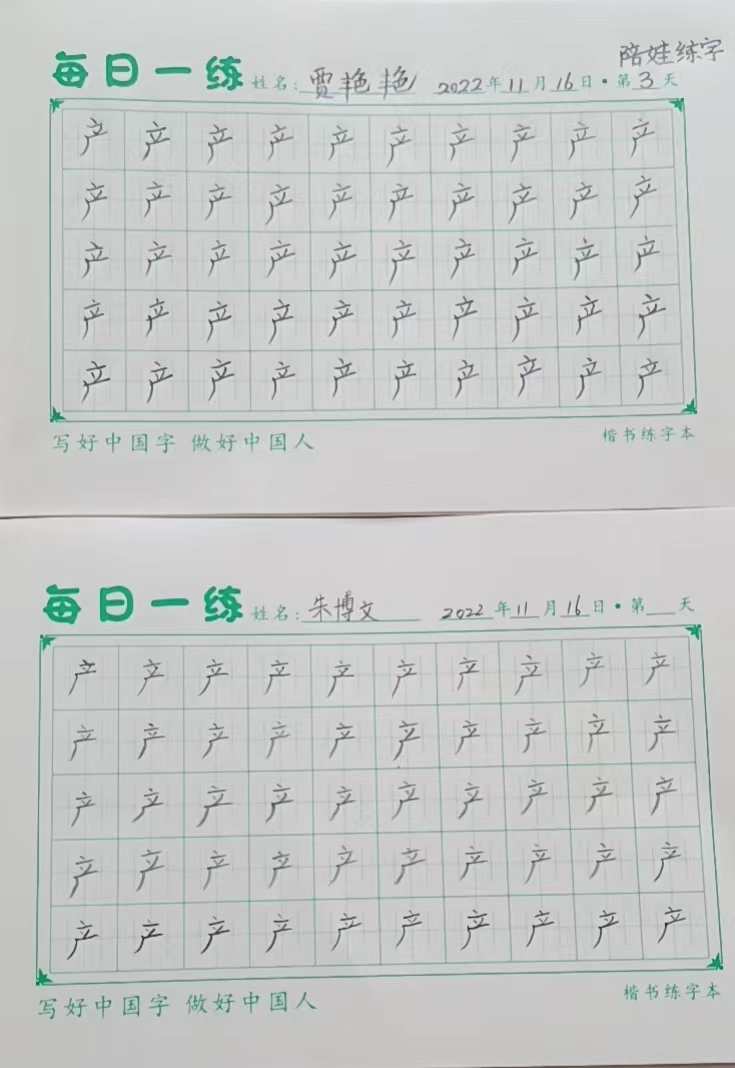 陪娃练字
每日一练 姓名：贾艳艳 2022年11月16日·第3天
产产产产产产产产产产
产产产产产产产产产产
产产产产产产产产产产
产产产产产产产产产产
产产产产产产产产产产
写好中国字 做好中国人 楷书练字本
每日一练 姓名：朱博文 2022年11月16日·第 天
产产产产产产产产产产
产产产产产产产产产产
产产产产产产产产产产
产产产产产产产产产产
产产产产产产产产产产
写好中国字 做好中国人 楷书练字本